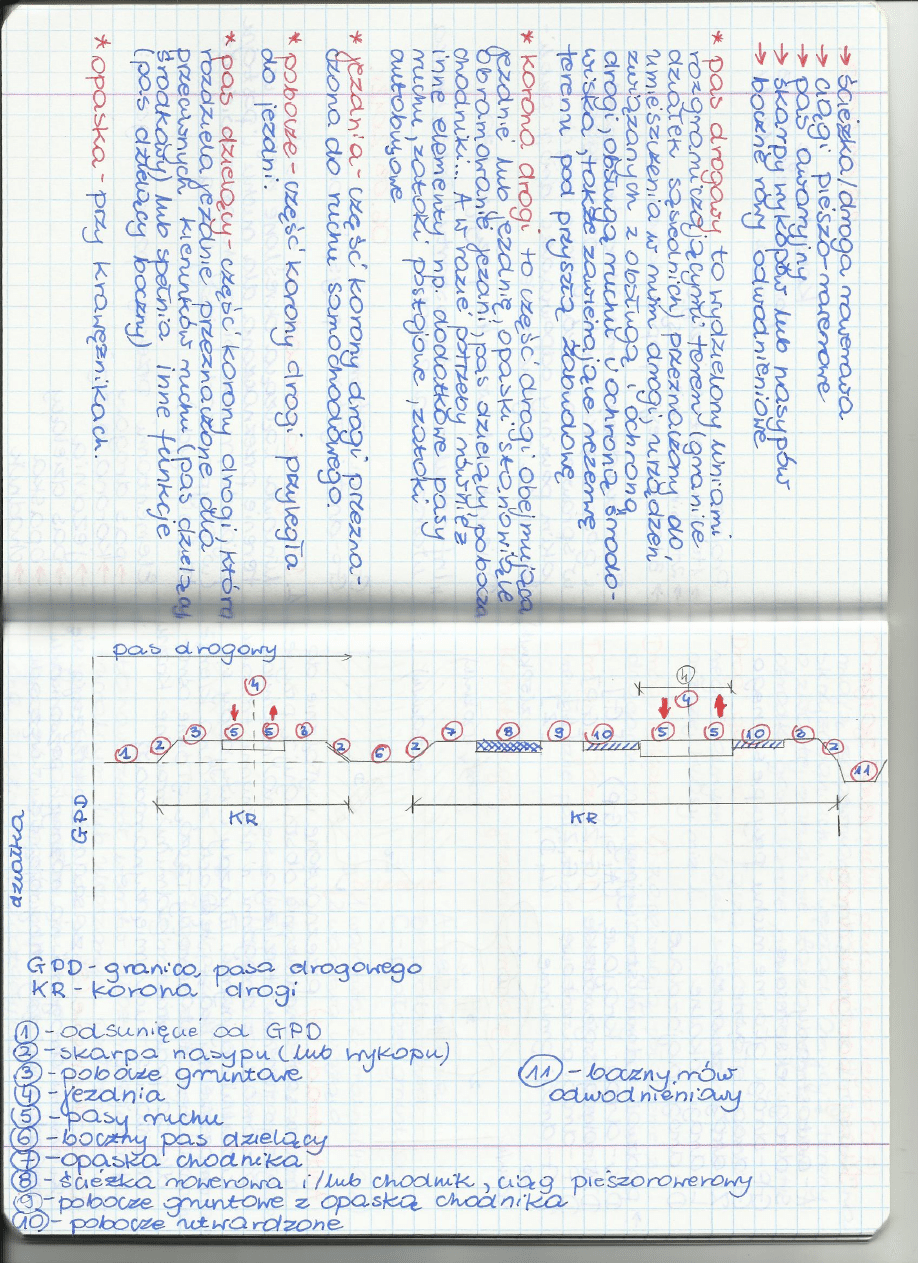 → ścieżka/droga rowerowa
→ ciągi pieszo-rowerowe
→ pas awaryjny
→ skarpy wykopów lub nasypów
→ boczne rowy odwodnieniowe
* pas drogowy to wydzielony liniami
rozgraniczającymi teren (granice
działek sąsiednich) przeznaczony do
umieszczenia w nim drogi, urządzeń
związanych z obsługą i ochroną
drogi, obsługą ruchu i ochroną środo-
wiska, także zawierające rezerwę
terenu pod przyszłą zabudowę
* korona drogi to część drogi obejmująca
jezdnię lub jezdnie, opaski stanowiące
obramowanie jezdni, pas dzielący, pobocza
chodniki... A w razie potrzeby również
inne elementy np. dodatkowe pasy
ruchu, zatoki postojowe, zatoki
autobusowe
* jezdnia - część korony drogi przezna-
czona do ruchu samochodowego.
* pobocze - część korony drogi przyległa
do jezdni.
* pas dzielący - część korony drogi, który
rozdziela jezdnie przeznaczone dla
przeciwnych kierunków ruchu (pas dzielący
środkowy) lub spełnia inne funkcje
(pas dzielący boczny)
* opaska - przy krawężnikach.
pas drogowy
4 4 4
1 2 3 5 5 3 2 6 2 7 8 9 10 5 5 10 3 2 11
KR KR
GPD
działka
GPD - granica pasa drogowego
KR - korona drogi
1 - odsunięcie od GPD
2 - skarpa nasypu (lub wykopu)
3 - pobocze gruntowe
4 - jezdnia
5 - pasy ruchu
6 - boczny pas dzielący
7 - opaska chodnika
8 - ścieżka rowerowa i/lub chodnik, ciąg pieszorowerowy
9 - pobocze gruntowe z opaską chodnika
10 - pobocze utwardzone
11 - boczny rów
odwodnieniowy